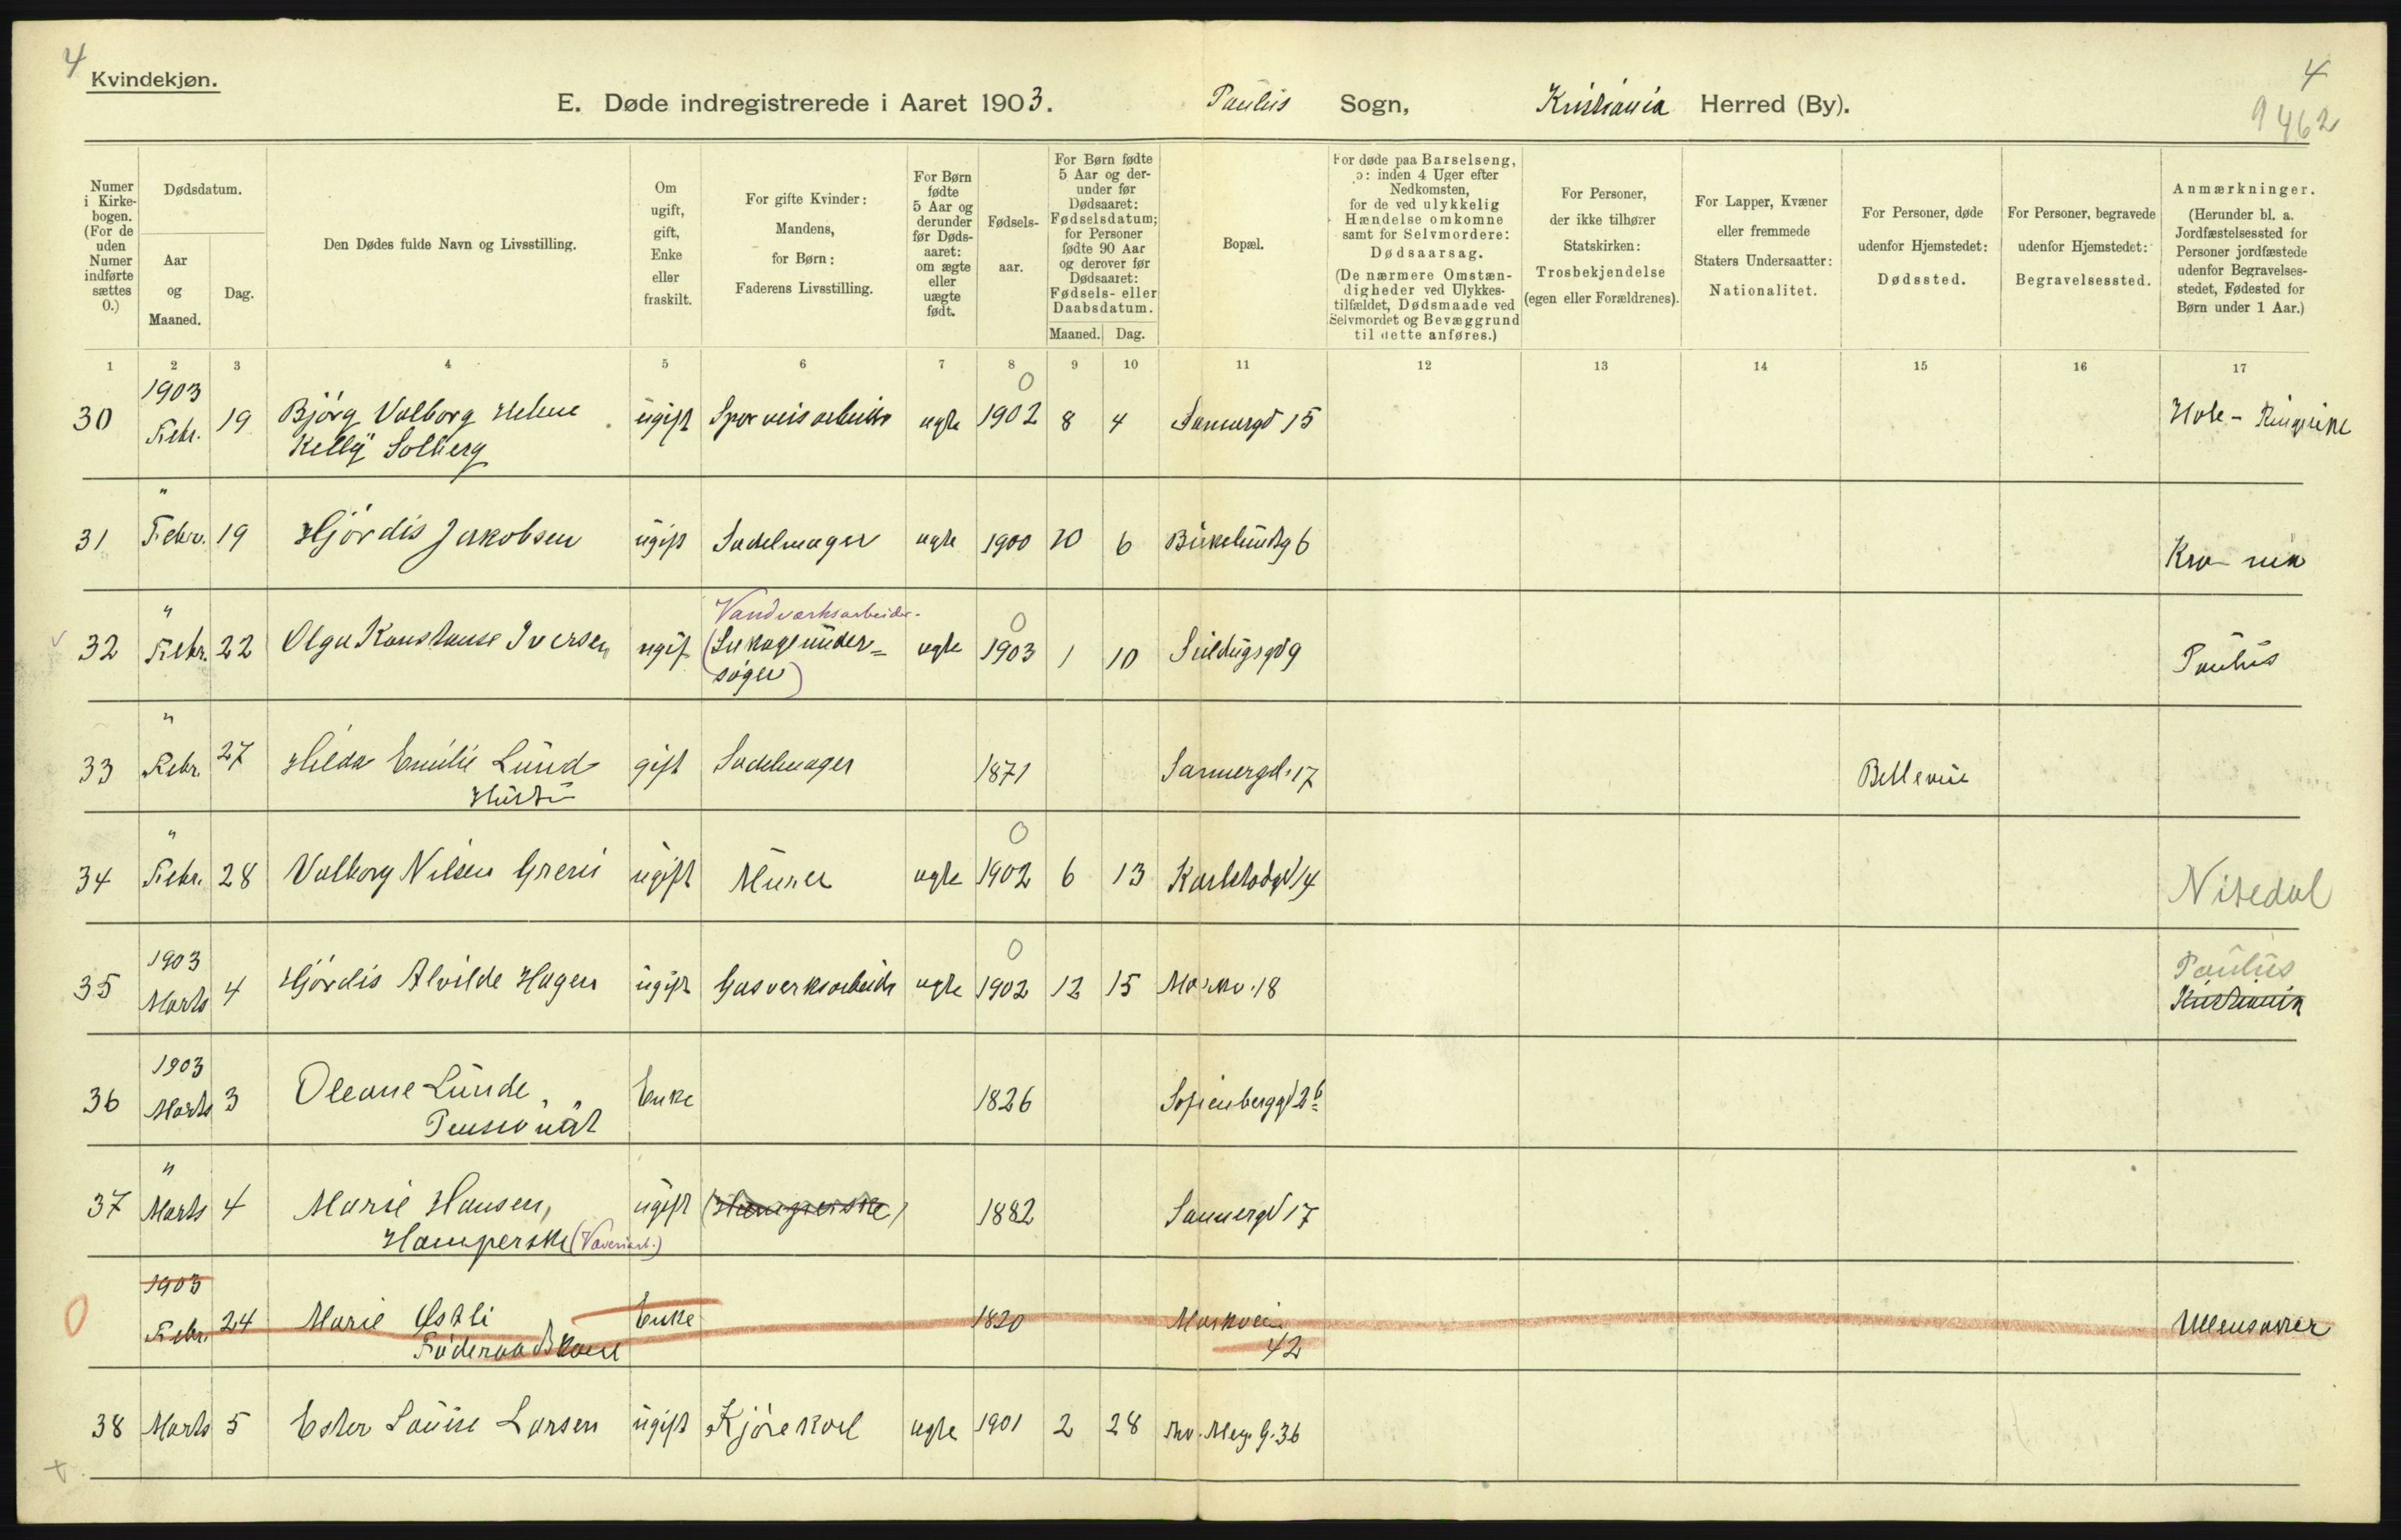 4
Kvindekjøn.
E. Døde indregistrerede i Aaret 1903. Paulus Sogn, Kristiania Herred (By).
4
9462
Numer i Kirkebogen. (For de uden Numer indførte sættes 0.)
Dødsdatum.
Aar og Maaned.
Dag.
Den Dødes fulde Navn og Livsstilling.
Om ugift, gift, Enke eller fraskilt.
For gifte Kvinder: Mandens, for Børn: Faderens Livsstilling.
For Børn fødte 5 Aar og derunder før Dødsaaret: om ægte eller uægte født.
Fødselsaar.
For Børn fødte 5 Aar og derunder før Dødsaaret: Fødselsdatum; for Personer fødte 90 Aar og derover før Dødsaaret: Fødsels- eller Daabsdatum.
Maaned. Dag.
Bopæl.
For døde paa Barselseng, ɔ: inden 4 Uger efter Nedkomsten, for de ved ulykkelig Hændelse omkomne samt for Selvmordere: Dødsaarsag. (De nærmere Omstændigheder ved Ulykkestilfældet, Dødsmaade ved Selvmordet og Bevæggrund til dette anføres.)
For Personer, der ikke tilhører Statskirken: Trosbekjendelse (egen eller Forældrenes).
For Lapper, Kvæner eller fremmede Staters Undersaatter: Nationalitet.
For Personer, døde udenfor Hjemstedet: Dødssted.
For Personer, begravede udenfor Hjemstedet: Begravelsessted.
Anmærkninger. (Herunder bl. a. Jordfæstelsessted for Personer jordfæstede udenfor Begravelsesstedet, Fødested for Børn under 1 Aar.)
1 2 3 4 5 6 7 8 9 10 11 12 13 14 15 16 17
1903 0
30 Febr. 19 Bjørg Valborg Helene ugift Sporveisarbeider ægte 1902 8 4 Sannergd 15 Hole - Ringerike
Kelly Solberg
"
31 Febr. 19 Hjørdis Jakobsen ugift Sadelmager ægte 1900 10 6 Birkelundsg 6 Kra- nia
" Vandværksarbeider. 0
32 Febr. 22 Olga Konstanse Iversen ugift ( ægte 1903 1 10 9 Paulus
søger)
"
33 Febr. 27 Hilda Emilie Lund gift Sadelmager 1871 Sannergd. 17 Bellevue
Hustru
" 0
34 Febr. 28 Valborg Nilsen ugift Murer ægte 1902 6 13 Karlstadgd 14 Nitedal
1903 0 Paulus
35 Marts 4 Hjørdis Alvilde Hagen ugift Gasverksarbeider ægte 1902 12 15 Markv. 18 Kristiania
1903
36 Marts 3 Oleane Lunde, Enke 1826 Sofienberggd 2b
Pensionær
"
37 Marts 4 Marie Hansen, ugift (Hamperske) 1882 Sannergd 17
Hamperske (Væveriarb.)
1903
0 Febr. 24 Marie Østli Enke 1820 Markvei Ullensaker
Føderaadskone 42
38 Marts 5 Ester Louise Larsen ugift Kjørekarl ægte 1901 2 28 Thv. Mey. G. 36